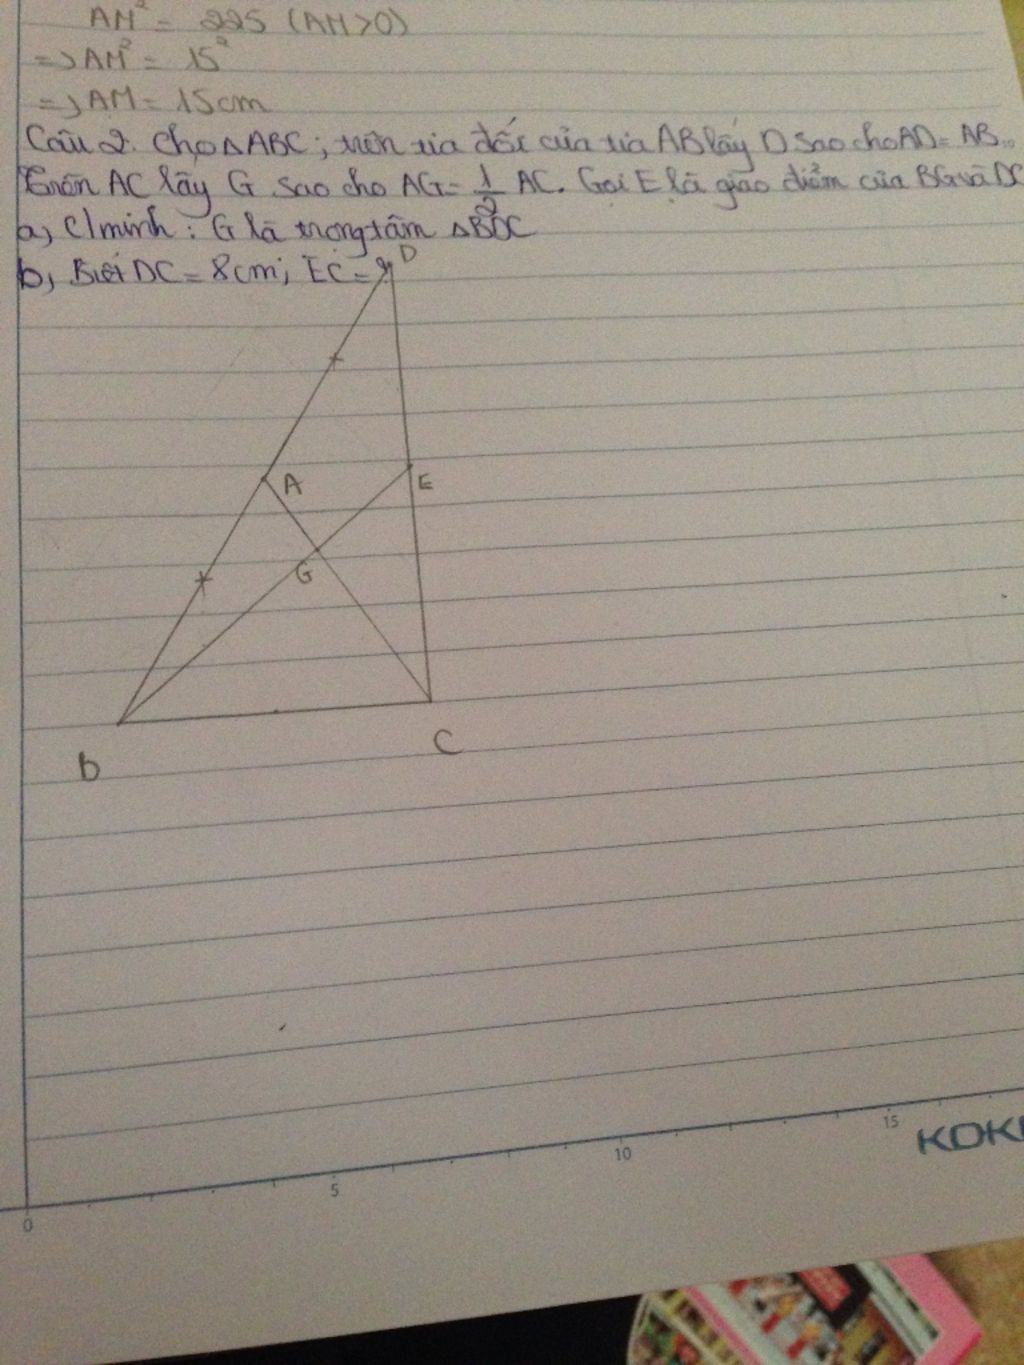 AM² = 225 (AM>0)
=> AM² = 15²
=> AM = 15cm
Câu 2. Cho △ABC; trên tia đối của tia AB lấy D sao cho AD = AB.
Trên AC lấy G sao cho AG = 1/2 AC. Gọi E là giao điểm của BG và DC
a, C/minh: G là trọng tâm △BDC
b, Biết DC = 8cm; EC = ?
D
A
E
G
C
b
0
5
10
15